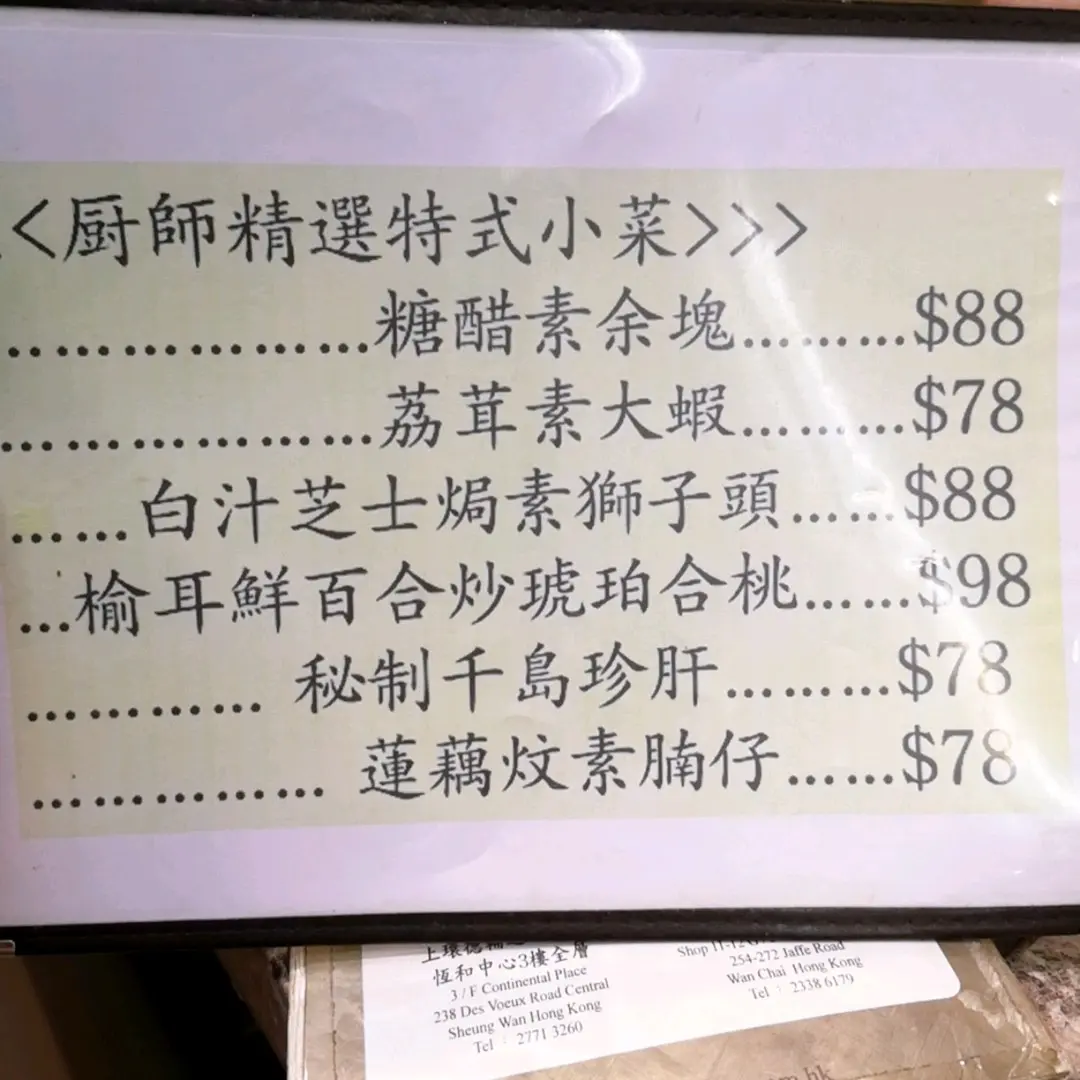 <厨師精選特式小菜>>>
..................糖醋素余塊.........$88
..................荔茸素大蝦.........$78
......白汁芝士焗素獅子頭......$88
...榆耳鮮百合炒琥珀合桃......$98
............ 秘制千島珍肝.........$78
............... 蓮藕炆素腩仔......$78
恆和中心3樓全層
3/F Continental Place
238 Des Voeux Road Central
Sheung Wan Hong Kong
Tel : 2771 3260
Shop 11-12
254-272 Jaffe Road
Wan Chai Hong Kong
Tel : 2338 6179